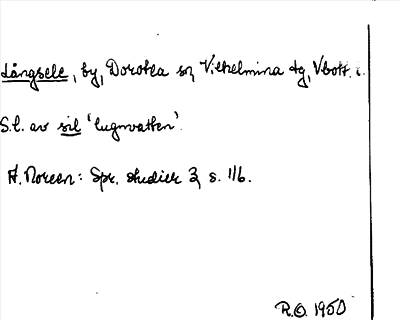 Långsele, by, Dorotea sn, Vilhelmina tg, Vbott.
S.l. av sil 'lugnvatten'.
A. Noreen: Spr. studier 3 s. 116.
R.O. 1950